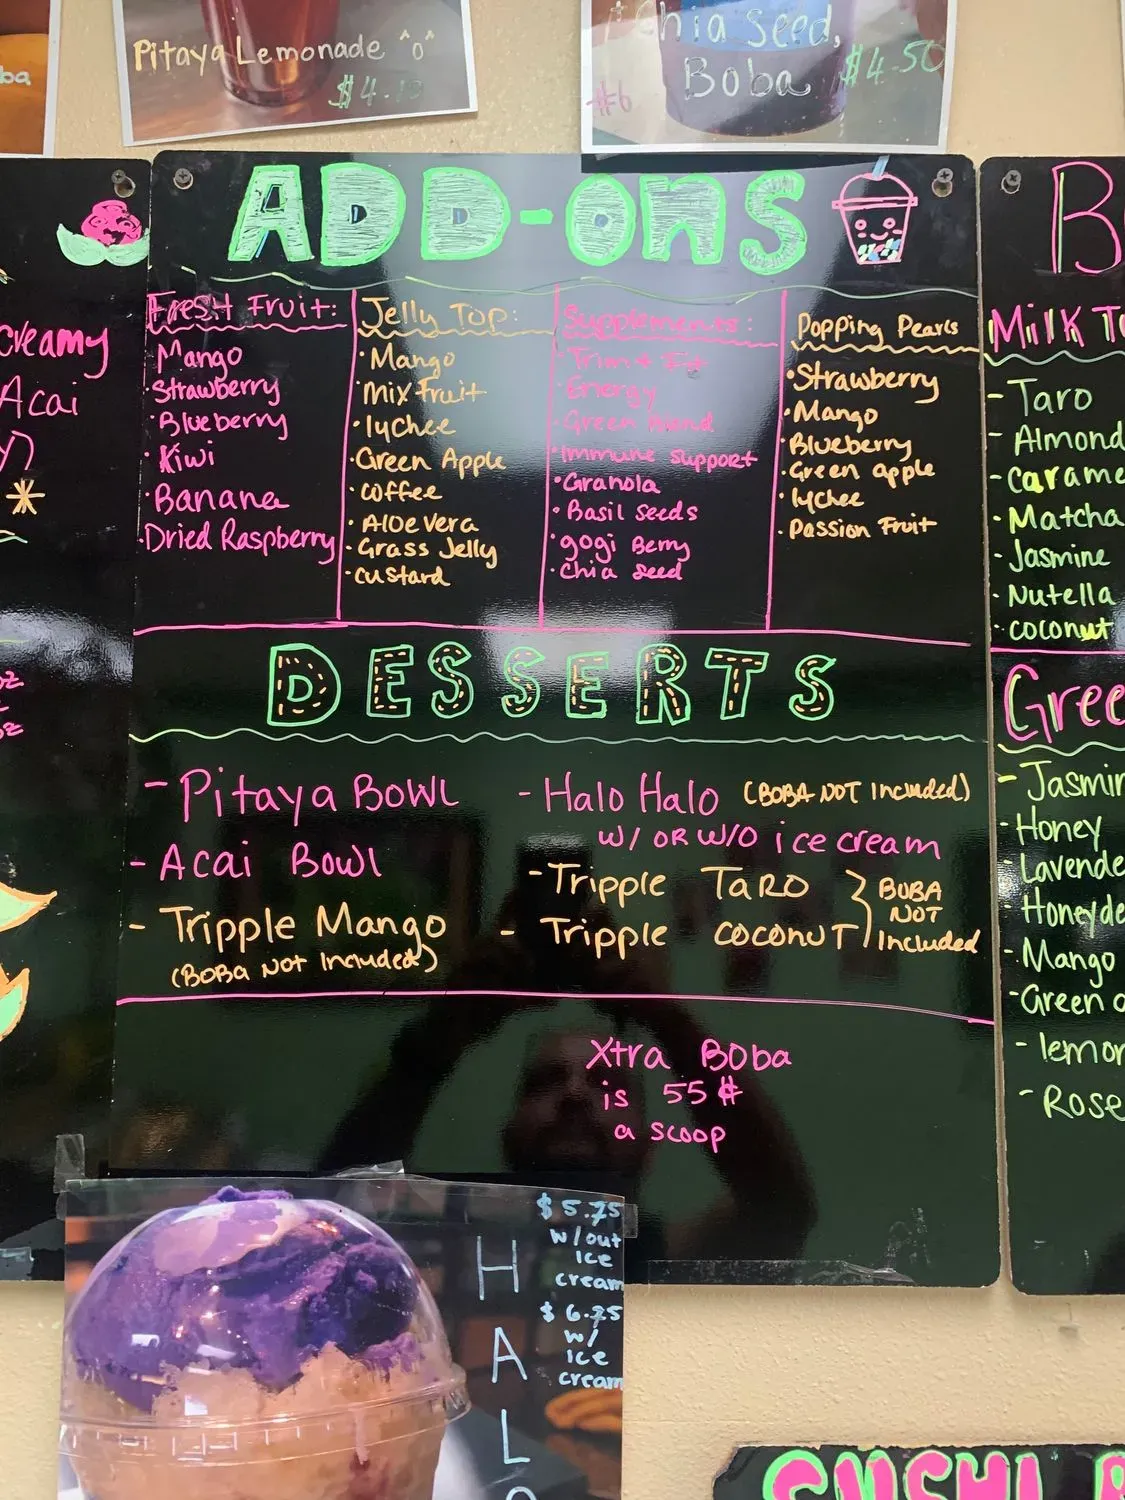 ba
Pitaya Lemonade ^o^
$4.
Chia Seed,
Boba
#6
$4.50
creamy
Acai
ADD-ONS
Fresh Fruit:
Mango
· Strawberry
· Blueberry
· Kiwi
· Banana
· Dried Raspberry
Jelly Top:
· Mango
· Mix Fruit
· lychee
· Green Apple
· coffee
· Aloe vera
· Grass Jelly
· custard
Supplements:
· Trim + Fit
· Energy
· Green Blend
· immune support
· Granola
· Basil seeds
· gogi Berry
· Chia seed
Popping Pearls
· Strawberry
· Mango
· Blueberry
· Green apple
· lychee
· Passion Fruit
DESSERTS
- Pitaya Bowl
- Acai Bowl
- Tripple Mango
(BOBA Not Included)
- Halo Halo (BOBA NOT Included)
w/ OR w/o ice cream
- Tripple TARO
- Tripple COCONUT
BOBA
NOT
Included
Xtra Boba
is 55¢
a scoop
Milk T
- Taro
- Almond
- carame
- Matcha
- Jasmine
- Nutella
- coconut
Gree
- Jasmin
- Honey
- Lavende
- Honeyde
- Mango
- Green
- lemon
- Rose
$5.75
w/out
ice
cream
$6.75
w/
ice
cream
H
A
L
SUSHI